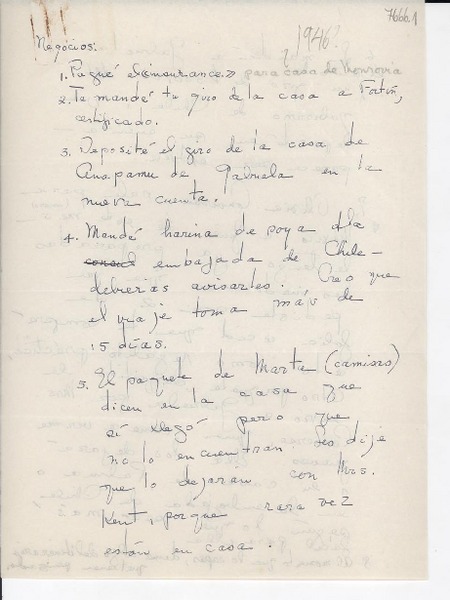 7666.1
¿1946?
Negócios:
1. Pagué el «insurance» para casa de Monrovia
2. Te mandé tu giro de la casa a Fortín,
certificado.
3. Deposité el giro de la casa de
Anapamu de Gabriela en la
nueva cuenta.
4. Mandé harina de poya a la
embajada de Chile –
deberías avisarles. Creo que
el viaje toma más de
15 días.
5. El paquete de Marta (camisas)
dicen en la casa que
sí llegó pero que
no lo encuentran. Les dije
que lo dejaran con Mrs.
Kent, porque rara vez
están en casa.